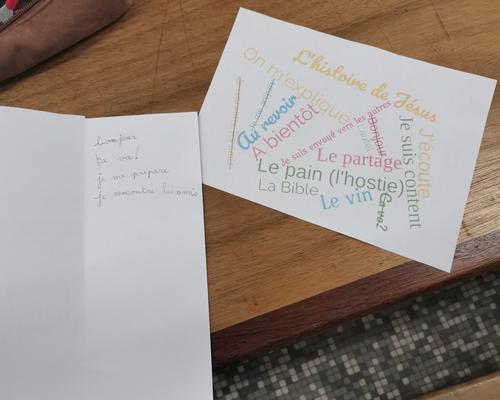 bonjour
ça va?
je me prépare
je rencontre les amis
L'histoire de Jésus
On m'explique
Au revoir
A bientôt
Je suis envoyé vers les autres
Bonjour
J'écoute
Je suis content
Le partage
Le pain (l'hostie)
La Bible
Le vin
Ca va?